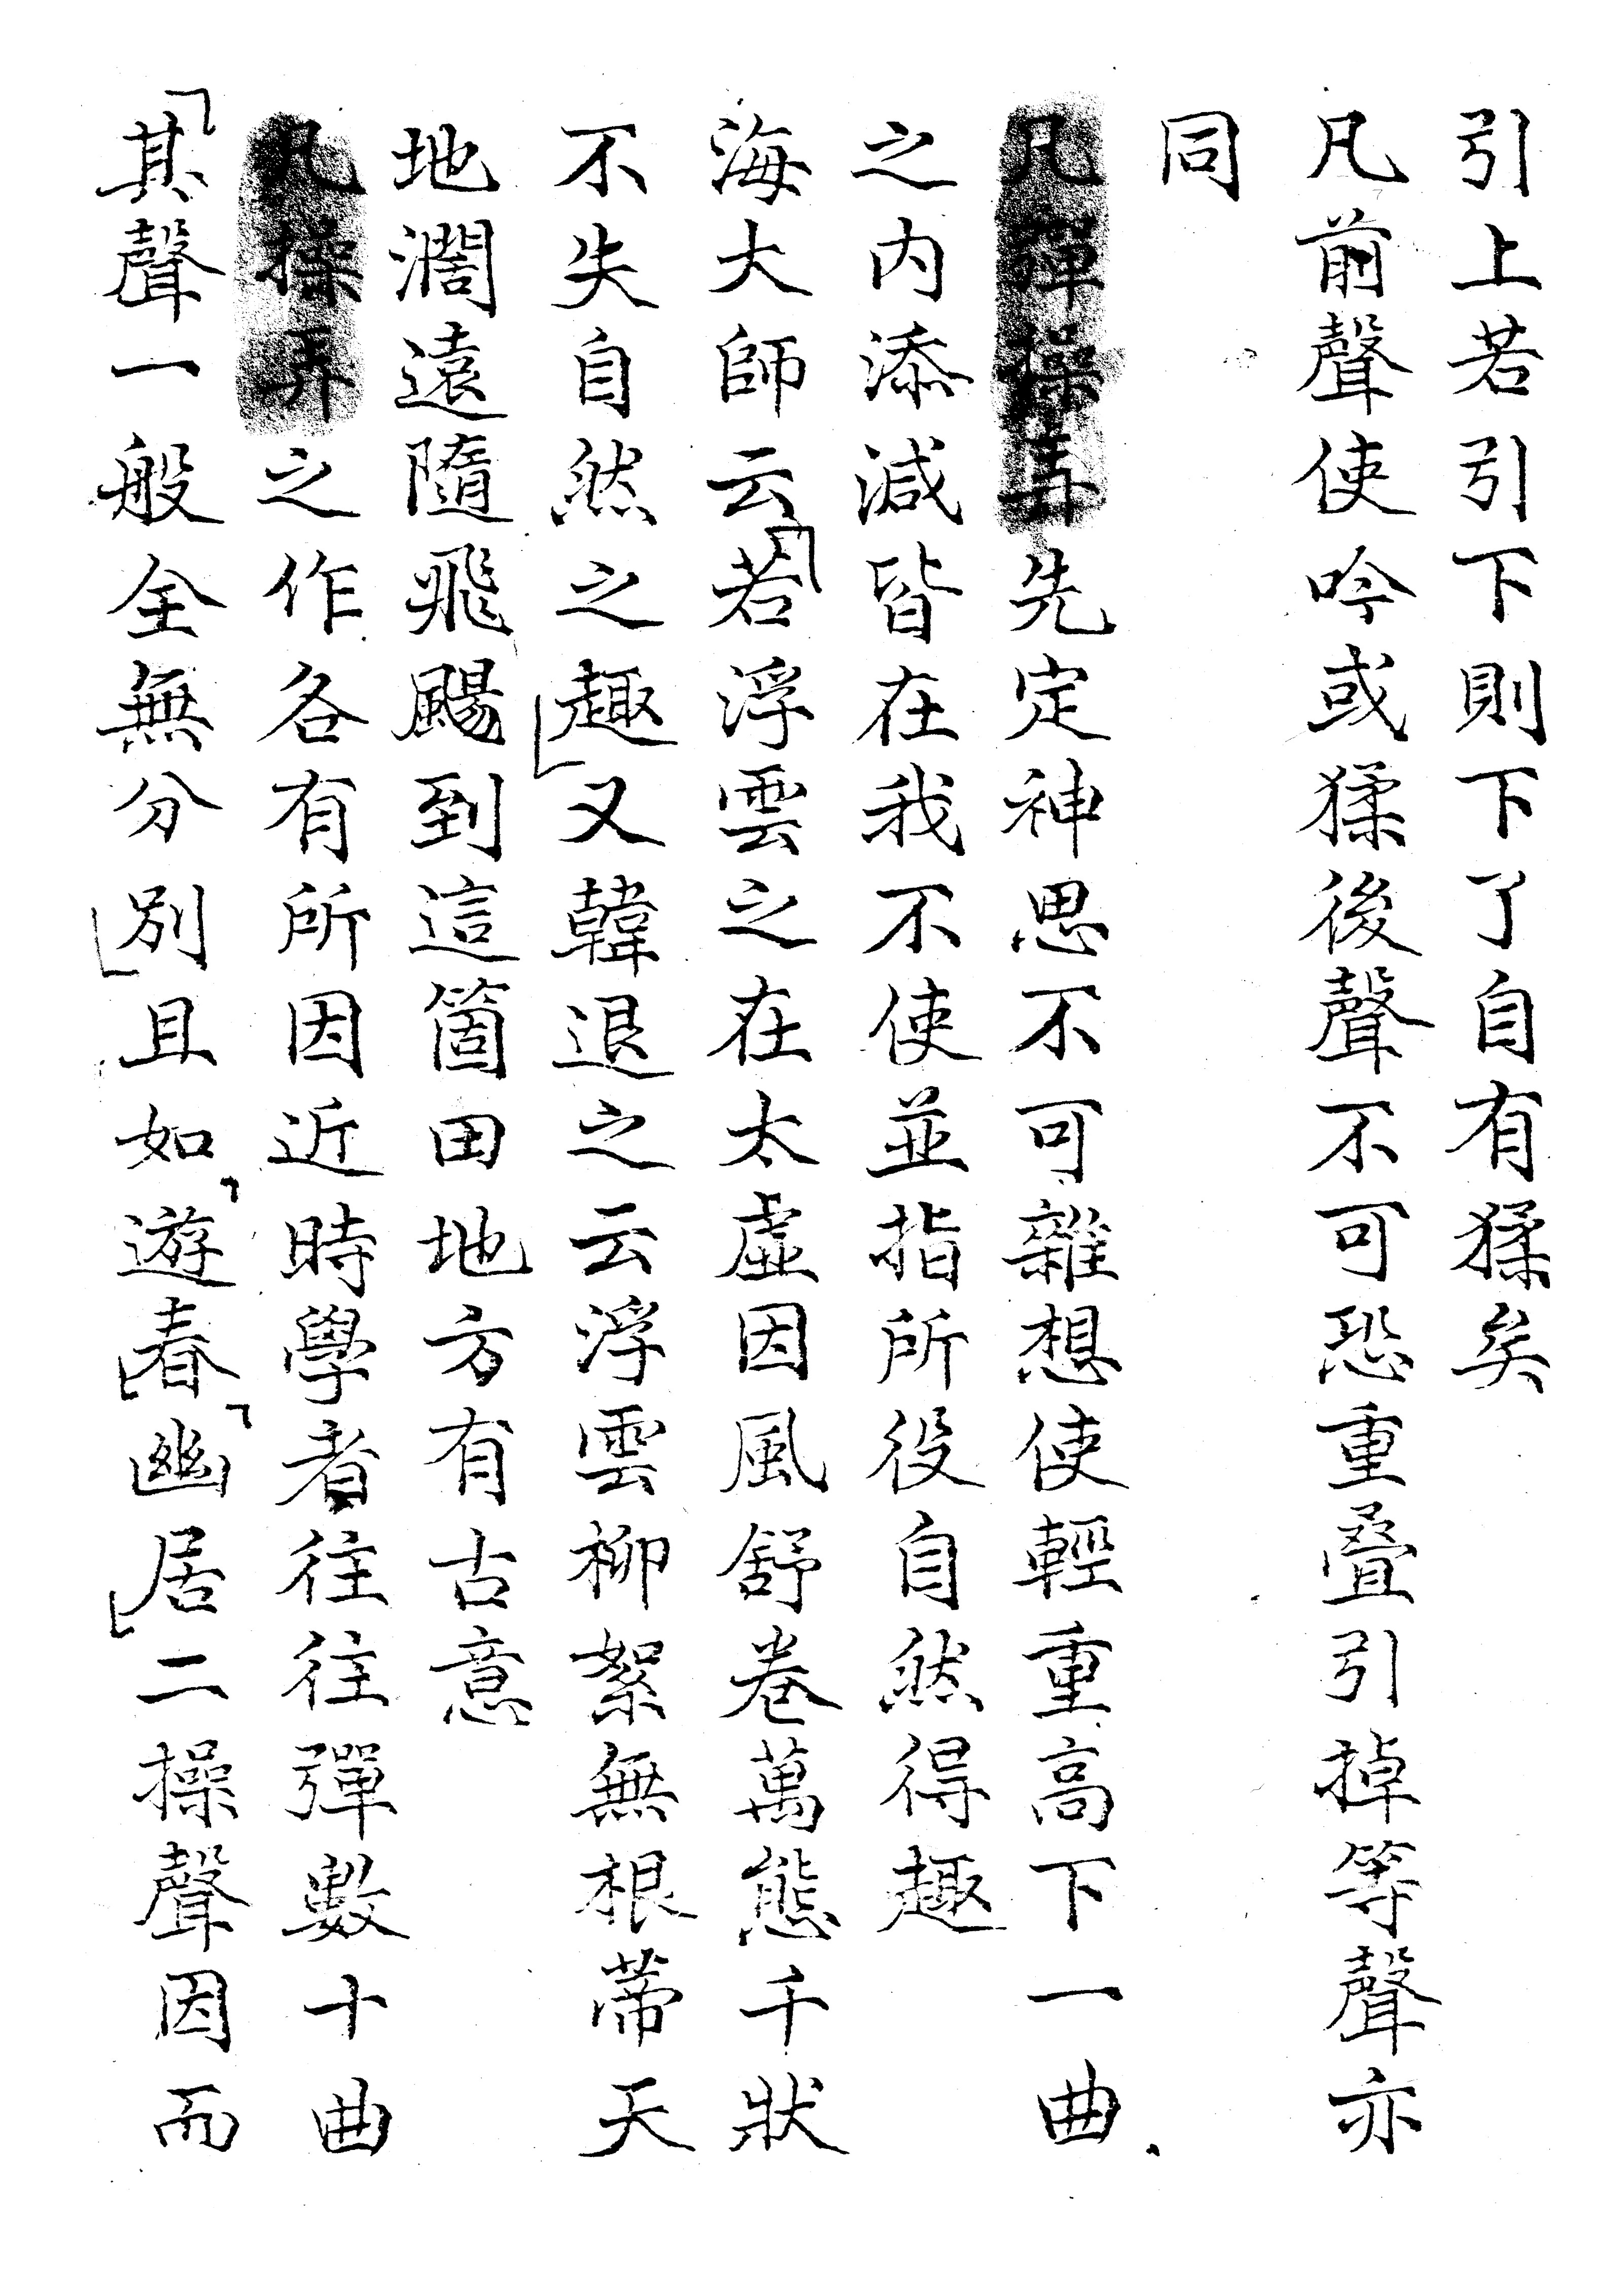 引上若引下則下了自有猱矣
凡前聲使吟或猱後聲不可恐重疊引掉等聲亦
同
凡彈操弄先定神思不可雜想使輕重高下一曲
之内添減皆在我不使並指所役自然得趣
海大師云「若浮雲之在太虛因風舒卷萬態千狀
不失自然之趣」又韓退之云浮雲柳絮無根蔕天
地濶遠隨飛颺到這箇田地方有古意
凡操弄之作各有所因近時學者往往彈數十曲
「其聲一般全無分別」且如「遊春」「幽居」二操聲因而